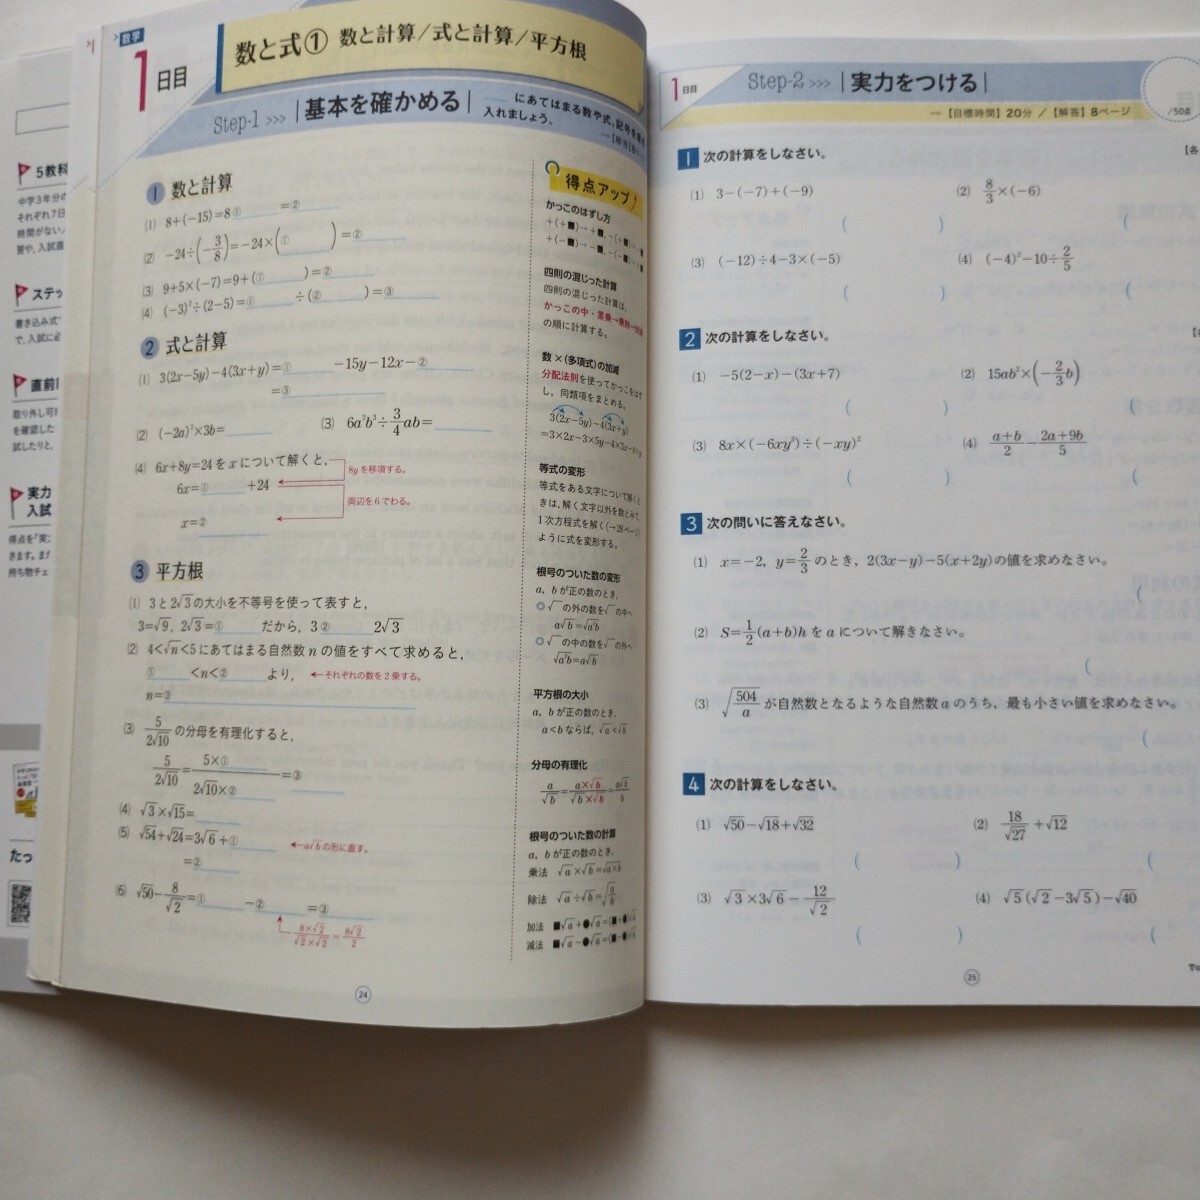 5教科
中学3年分の
それぞれ7日
時間がない
答や、入試直
ステッ
書き込み式
で、入試に必
直前
取り外し可
を確認した
試したりと、
実力
入試
得点を「実
きます。ま
持ち物チェ
たっ
数学
1日目
数と式① 数と計算/式と計算/平方根
Step-1 >>> |基本を確かめる|
にあてはまる数や式,記号を
入れましょう。
1 数と計算
(1) 8+(-15)=8① =②
(2) -24÷(-3/8)=-24×(① )=②
(3) 9+5×(-7)=9+(① )=②
(4) (-3)²÷(2-5)=① ÷(② )=③
2 式と計算
(1) 3(2x-5y)-4(3x+y)=① -15y-12x-②
=③
(2) (-2a)²×3b=
(3) 6a²b³÷3/4ab=
(4) 6x+8y=24をxについて解くと,
8yを移項する。
6x=① +24
両辺を6でわる。
x=②
3 平方根
(1) 3と2√3の大小を不等号を使って表すと,
3=√9, 2√3=① だから, 3② 2√3
(2) 4<√n<5にあてはまる自然数nの値をすべて求めると,
① <n<② より, ←それぞれの数を2乗する。
n=③
(3) 5/2√10の分母を有理化すると,
5/2√10=5×①/2√10×②=③
(4) √3×√15=
(5) √54+√24=3√6+① ←a√bの形に直す。
=②
(6) √50-8/√2=① -② =③
8×√2/√2×√2=8√2/2
24
得点アップ
かっこのはずし方
+(+■)→+■, -(+■)→-■
+(-■)→-■, -(-■)→+■
四則の混じった計算
四則の混じった計算は,
かっこの中・累乗→乗除→加減
の順に計算する。
数×(多項式)の加減
分配法則を使ってかっこをはず
し, 同類項をまとめる。
3(2x-5y)-4(3x+y)
=3×2x-3×5y-4×3x-4×y
等式の変形
等式をある文字について解くと
きは, 解く文字以外を数とみて,
1次方程式を解く(→28ページ)
ように式を変形する。
根号のついた数の変形
a, bが正の数のとき,
◎ √ の外の数を√ の中へ
a√b=√a²b
◎ √ の中の数を√ の外へ
√a²b=a√b
平方根の大小
a, bが正の数のとき,
a<bならば, √a<√b
分母の有理化
a/√b=a×√b/√b×√b=a√b/b
根号のついた数の計算
a, bが正の数のとき,
乗法 √a×√b=√a×b
除法 √a÷√b=√a/b
加法 ■√a+●√a=(■+●)√a
減法 ■√a-●√a=(■-●)√a
1日目
Step-2 >>> |実力をつける|
/50点
―【目標時間】20分 /【解答】8ページ
1 次の計算をしなさい。
【各
(1) 3-(-7)+(-9)
(2) 8/3×(-6)
( ) (
(3) (-12)÷4-3×(-5)
(4) (-4)²-10÷2/5
( ) (
2 次の計算をしなさい。
(1) -5(2-x)-(3x+7)
(2) 15ab²×(-2/3b)
( ) (
(3) 8x×(-6xy³)÷(-xy)²
(4) a+b/2-2a+9b/5
( ) (
3 次の問いに答えなさい。
(1) x=-2, y=2/3のとき, 2(3x-y)-5(x+2y)の値を求めなさい。
(
(2) S=1/2(a+b)hをaについて解きなさい。
(
(3) √504/aが自然数となるような自然数aのうち, 最も小さい値を求めなさい。
(
4 次の計算をしなさい。
(1) √50-√18+√32
(2) 18/√27+√12
( ) (
(3) √3×3√6-12/√2
(4) √5(√2-3√5)-√40
( ) (
25